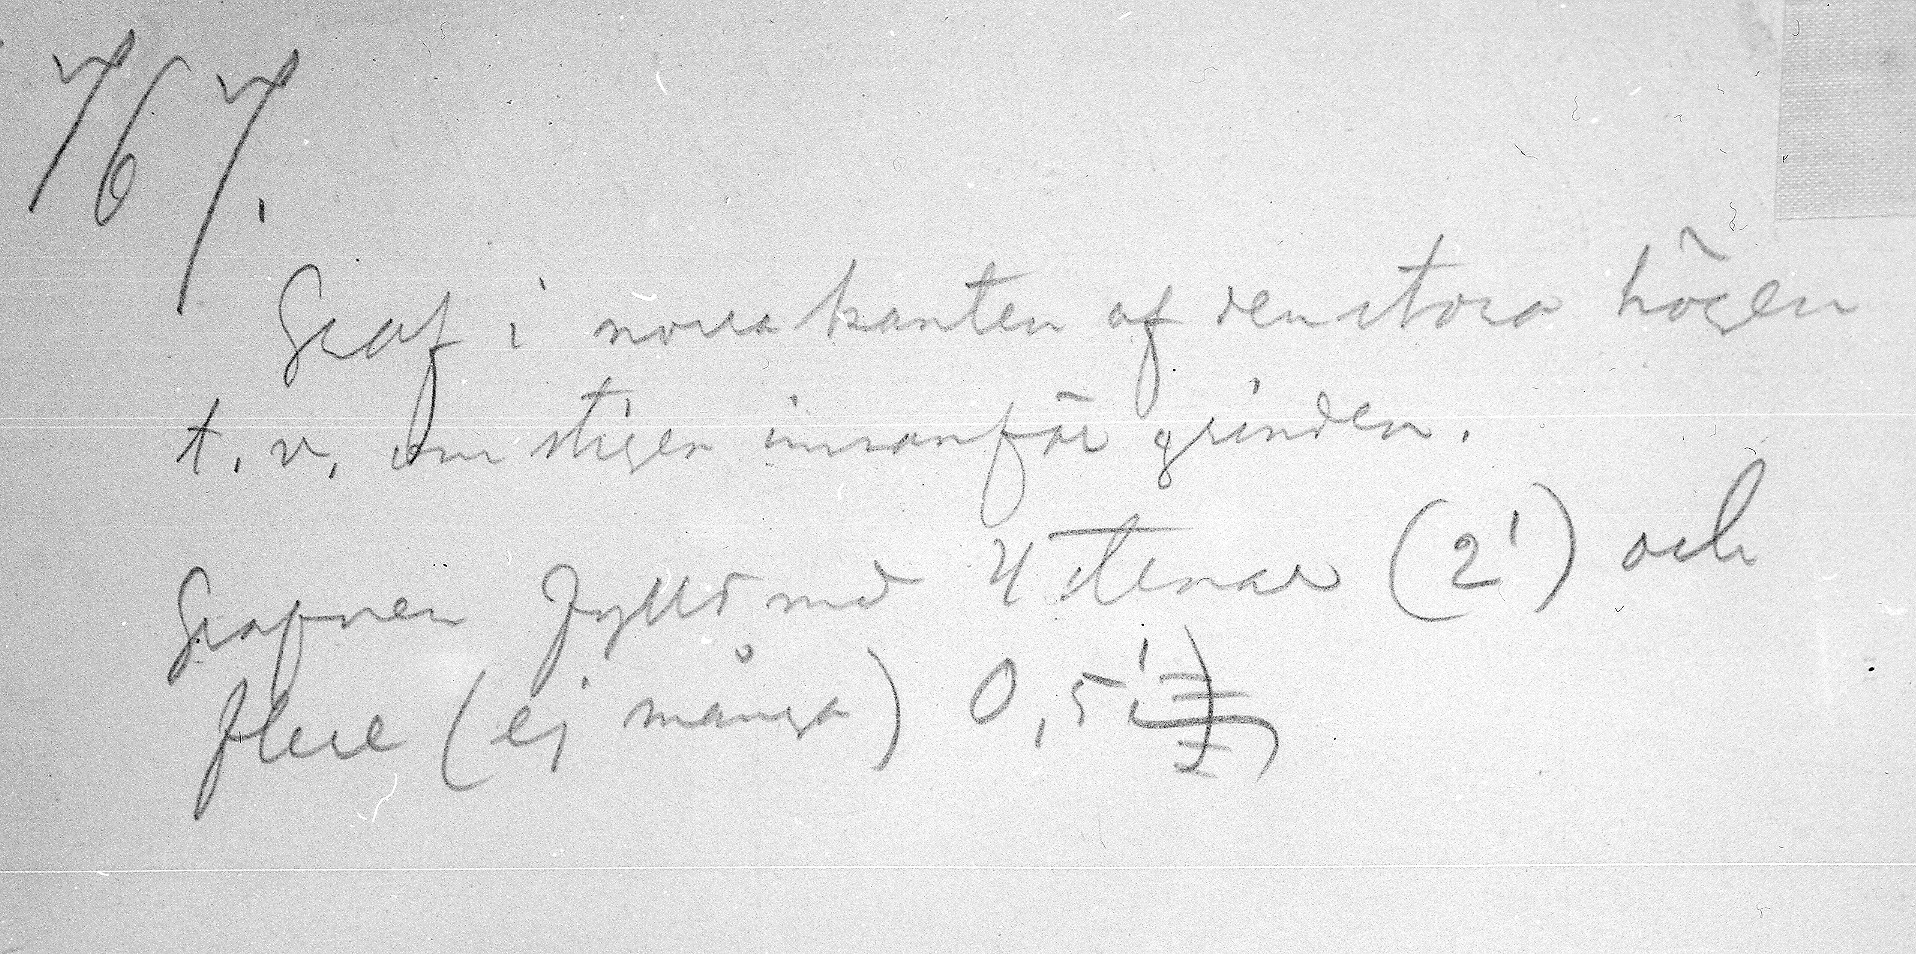 767.
Graf i norra kanten af den stora högen
t. v. om stigen innanför grinden.
Grafven fylld med 4 stenar (2') och
flere (ej många) 0,5'